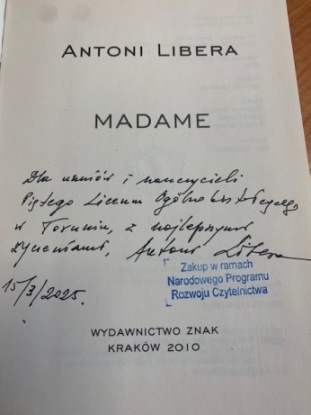 ANTONI LIBERA
MADAME
Dla uczniów i nauczycieli
Piątego Liceum Ogólnokształcącego
w Toruniu, z najlepszymi
życzeniami, Antoni Libera
15/3/2025.
Zakup w ramach
Narodowego Programu
Rozwoju Czytelnictwa
WYDAWNICTWO ZNAK
KRAKÓW 2010